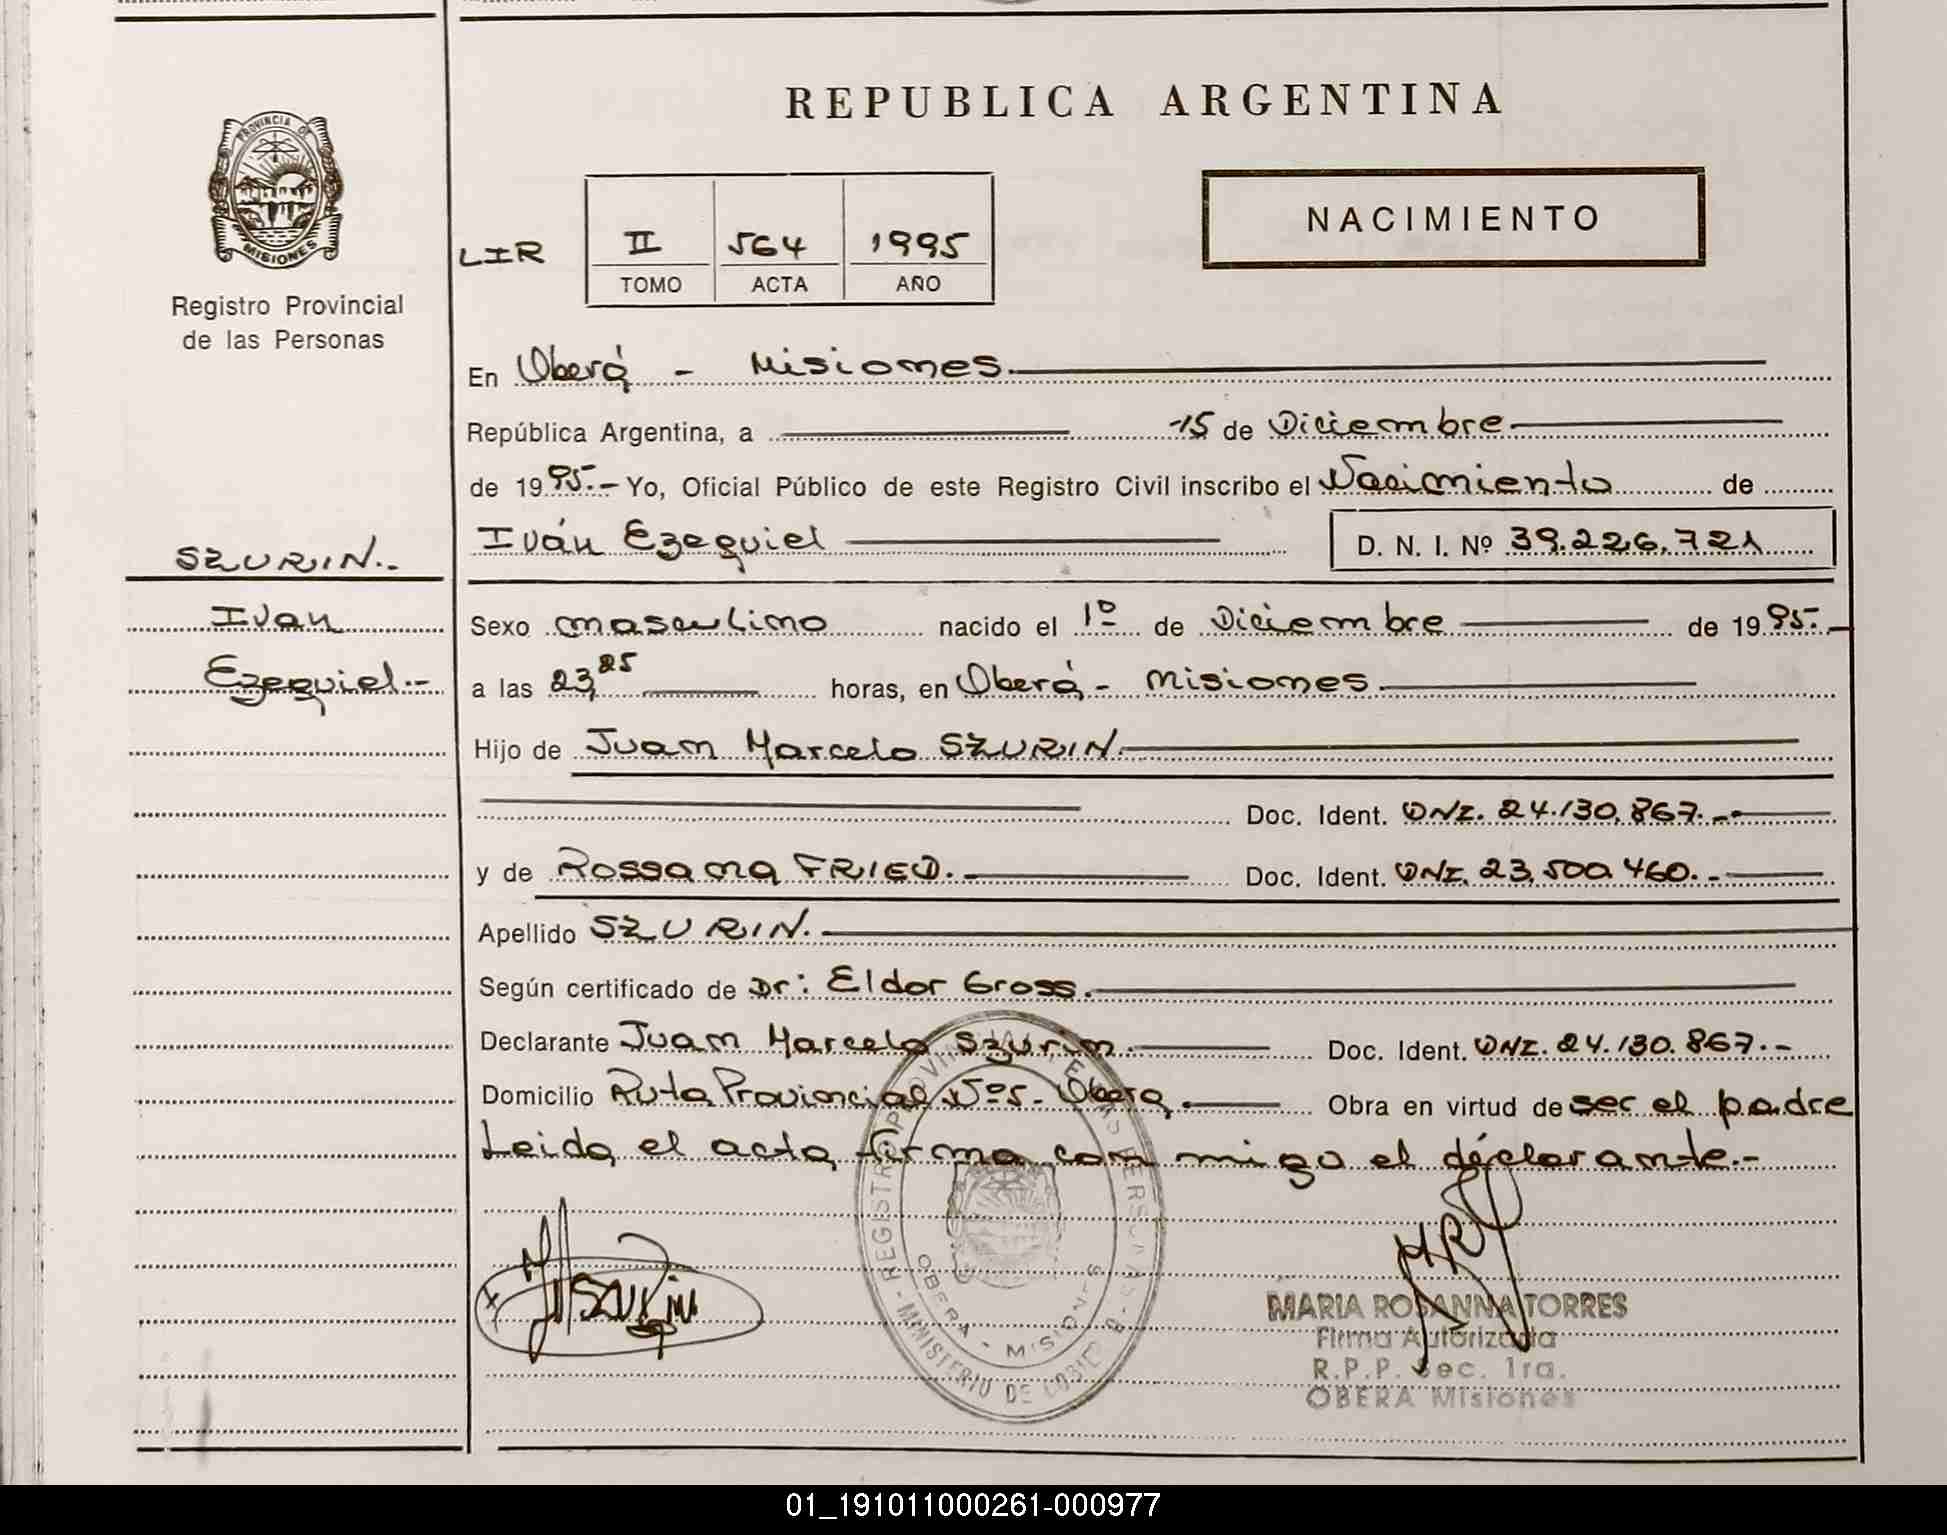 REPUBLICA ARGENTINA
PROVINCIA DE
MISIONES
Registro Provincial
de las Personas
NACIMIENTO
LIR II 564 1995
TOMO ACTA AÑO
En Oberá - Misiones.
República Argentina, a 15 de Diciembre
de 1995.- Yo, Oficial Público de este Registro Civil inscribo el Nacimiento de
Iván Ezequiel D. N. I. Nº 39.226.721
SZURIN.-
Ivan
Ezequiel.-
Sexo masculino nacido el 1º de Diciembre de 1995.-
a las 23,25 horas, en Oberá - Misiones.
Hijo de Juan Marcelo SZURIN.
Doc. Ident. DNI. 24.130.867.-
y de Rossana FRIED.- Doc. Ident. DNI. 23.500.460.-
Apellido SZURIN.
Según certificado de Dr: Eldor Gross.
Declarante Juan Marcelo Szurin. Doc. Ident. DNI. 24.130.867.-
Domicilio Ruta Provincial Nº5- Oberá. Obra en virtud de ser el padre
Leida el acta, firma con migo el declarante.-
MARIA ROSANNA TORRES
Firma Autorizada
R.P.P. Sec. 1ra.
OBERA Misiones
OBERA - MISIONES
MINISTERIO DE GOBIERNO
01_191011000261-000977